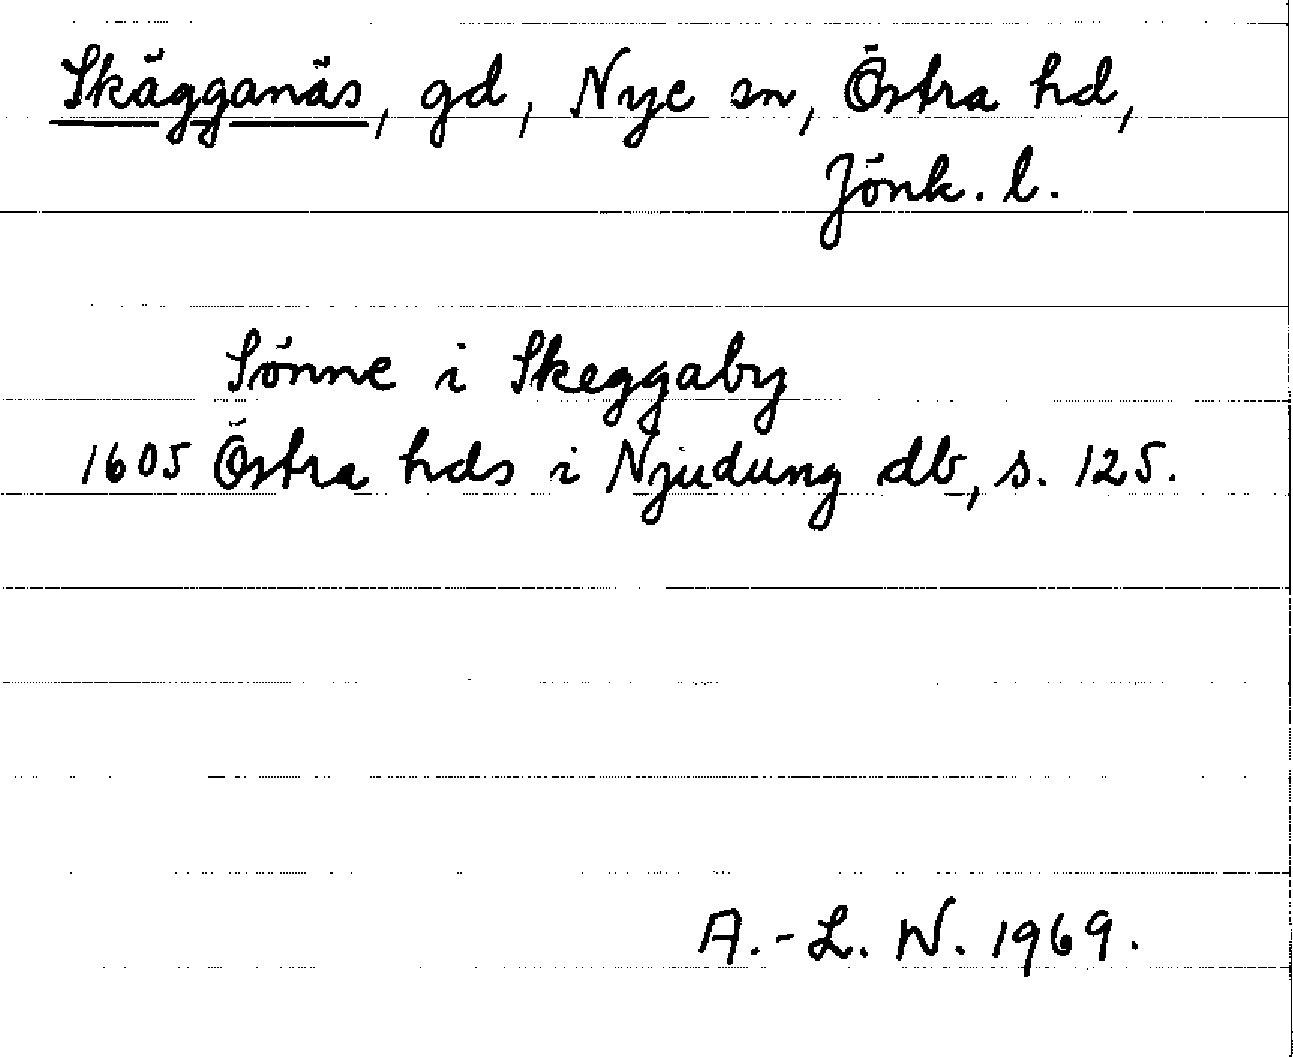 Skägganäs, gd, Nye sn, Östra hd,
Jönk. l.
Sönne i Skeggaby
1605 Östra hds i Njudung db, s. 125.
A.-L. W. 1969.